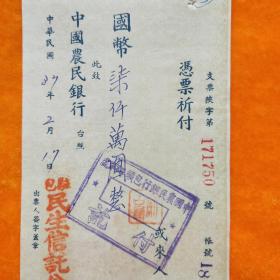 支票陝字第 171750 號 帳號 18
憑票祈付
或來人
國幣柒仟萬圓整
此致
中國農民銀行 台照
中華民國 37 年 2 月 17 日
出票人簽字蓋章
民生信託
付訖